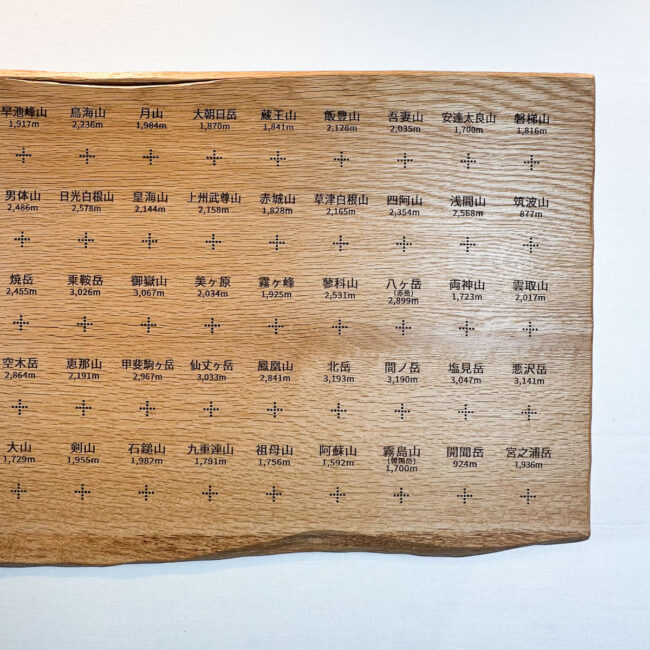 早池峰山 鳥海山 月山 大朝日岳 蔵王山 飯豊山 吾妻山 安達太良山 磐梯山
1,917m 2,236m 1,984m 1,870m 1,841m 2,128m 2,035m 1,700m 1,816m
男体山 日光白根山 皇海山 上州武尊山 赤城山 草津白根山 四阿山 浅間山 筑波山
2,486m 2,578m 2,144m 2,158m 1,828m 2,165m 2,354m 2,568m 877m
焼岳 乗鞍岳 御嶽山 美ヶ原 霧ヶ峰 蓼科山 八ヶ岳 両神山 雲取山
(赤岳)
2,455m 3,026m 3,067m 2,034m 1,925m 2,531m 2,899m 1,723m 2,017m
空木岳 恵那山 甲斐駒ヶ岳 仙丈ヶ岳 鳳凰山 北岳 間ノ岳 塩見岳 悪沢岳
2,864m 2,191m 2,967m 3,033m 2,841m 3,193m 3,190m 3,047m 3,141m
大山 剣山 石鎚山 九重連山 祖母山 阿蘇山 霧島山 開聞岳 宮之浦岳
(韓国岳)
1,729m 1,955m 1,982m 1,791m 1,756m 1,592m 1,700m 924m 1,936m